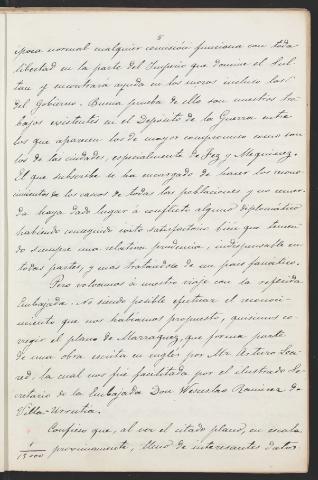 8
época normal cualquier comisión funciona con toda
libertad en la parte del Imperio que domine el Sul-
tan y encontrará ayuda en los moros incluso los
del Gobierno. Buena prueba de ello son nuestros tra-
bajos existentes en el Depósito de la Guerra entre
los que aparecen los de mayor compromiso como son
los de las ciudades, especialmente de Fez y Mequinez.
El que subscribe se ha encargado de hacer los recono-
cimientos de los casos de todas las poblaciones y no recuer-
da haya dado lugar á conflicto alguno diplomático
habiendo conseguido exito satisfactorio bien que tenien-
do siempre una relativa prudencia, indispensable en
todas partes, y mas tratándose de un pais fanatico.
Pero volvamos á nuestro viaje con la referida
Embajada. No siendo posible efectuar el reconoci-
miento que nos habíamos propuesto, quisimos co-
rregir el plano de Marraquez, que forma parte
de una obra escrita en inglés por Mr. Arturo Lea-
red, la cual nos fué facilitada por el ilustrado Se-
cretario de la Embajada Don Wenceslao Ramirez de
Villa-Urrutia.
Confieso que, al ver el citado plano, en escala
1/15000 proximamente, lleno de interesantes datos